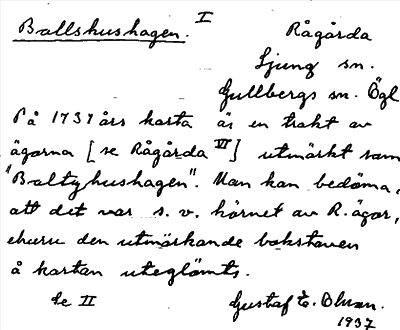 Ballshushagen. I Rågårda
Ljung sn.
Gullbergs hd. Ögl
På 1737 års karta är en trakt av
ägorna [se Rågårda VI] utmärkt som
"Baltyhushagen". Man kan bedöma,
att det var s. v. hörnet av R. ägor,
ehuru den utmärkande bokstaven
å kartan uteglömts.
Se II Gustaf E. Olsson.
1937